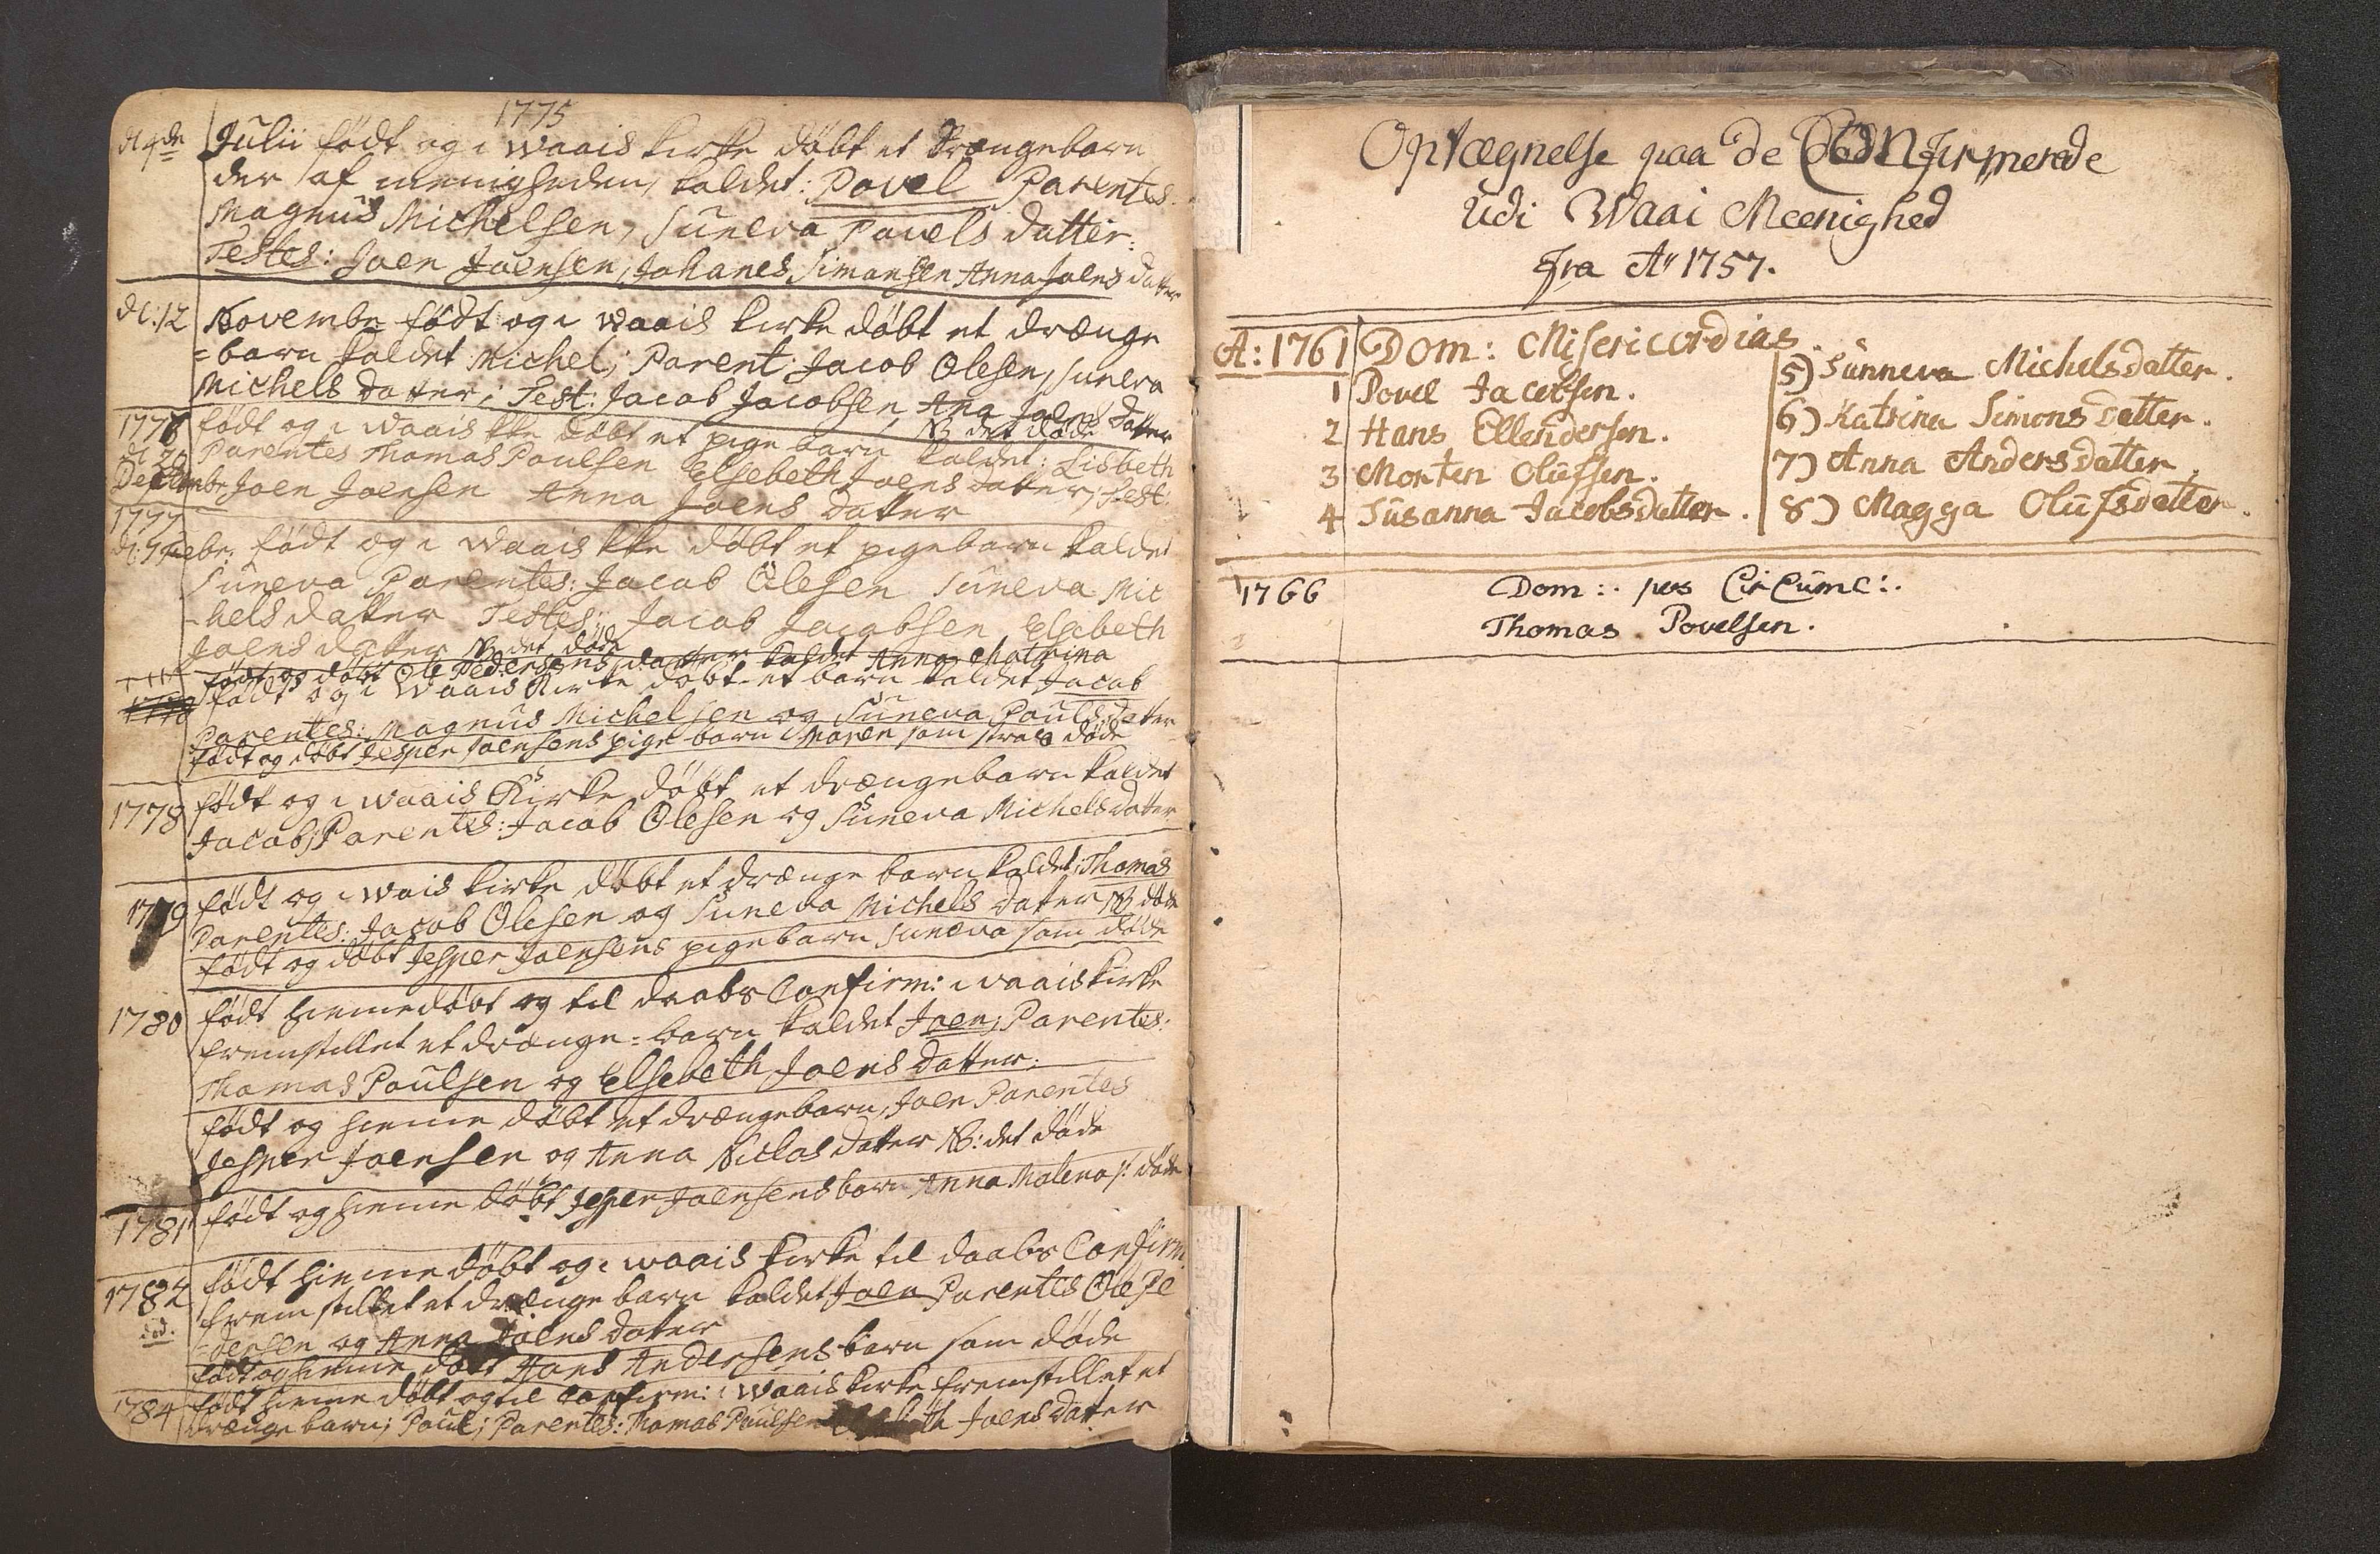 1775
d 4de Julii födt og i Waais kirke döbt et drængebarn
der af menigheden, kaldet: Povel Parentes
Magnus Michelsen, Suneva Povels datter:
Testes: Joen Joensen, Johanes Simonsen Anna Joens datter
dl:12 Novembr födt og i Waais kirke döbt et drænge
=barn kaldet Michel; Parent: Jacob Olesen, Suneva
Michels datter; Test: Jacob Jacobsen, Ana Joens datter
NB det döde
1776 födt og i Waais kke döbt et pige barn kaldet: Lisbeth
dl 20 Parentes Thomas Poulsen Elsebeth Joens datter; Test:
Joen Joensen Anna Joens datter
1777
födt og i Waais kke döbt et pigebarn kaldet
Suneva Parentes: Jacob Olesen Suneva Mic
-hels datter Testes: Jacob Jacobsen Elsebeth
Joens datter NB det döde
födt og döbt Ole Pedersens datter kaldet Anna Matrina
1778 födt og i Waais Kirke döbt et barn kaldet Jacob
Parentes: Magnus Michelsen og Suneva Pouls datter
födt og döbt Jesper Joensens pige barn Maren som strax döde
1778 födt og i Waais Kirke döbt et drængebarn kaldet
Jacob; Parentes: Jacob Olesen og Suneva Michels datter
1779 födt og i Wais kirke döbt et drænge barn kaldet; Thomas
Parentes: Jacob Olesen og Suneva Michels datter NB döde
födt og döbt Jesper Joensens pigebarn Suneva som döde
1780 födt hiemedöbt og til daabs Confirm: i Waais kirke
fremstillet et drænge=barn kaldet Joen; Parentes:
Thomas Poulsen og Elsebeth Joens datter;
födt og hieme döbt et drængebarn, Joen Parentes
Jesper Joensen og Anna Niclas datter NB: det döde
1781 födt og hieme döbt Jesper Joensens barn Anna Malena s: döde
1782 födt hiemedöbt og i Waais kirke til daabs Confirm
fremstillet et drænge barn kaldet Joen Parentes Ole Pe
död.
=dersen og Anna Joens datter
födt og hieme döbt Hans Andersens barn som döde
1784 födt hieme döbt og til Confirm: i Waais kirke fremstillet et
drænge barn; Poul; Parentes: Thomas Poulsen Joens datter
Optægnelse paa De Confirmerede
Udi Waai Meenighed
fra Ao 1757.
A: 1761 Dom: Misericordias.
1 Povel Jacobsen.
2 Hans Ellendersen.
3 Morten Olufsen.
4 Susanna Jacobsdatter.
5) Sunneva Michelsdatter.
6) Katrina Simonsdatter.
7) Anna Andersdatter.
8) Magga Olufsdatter.
1766 Dom: pos Circumc:.
Thomas Povelsen.